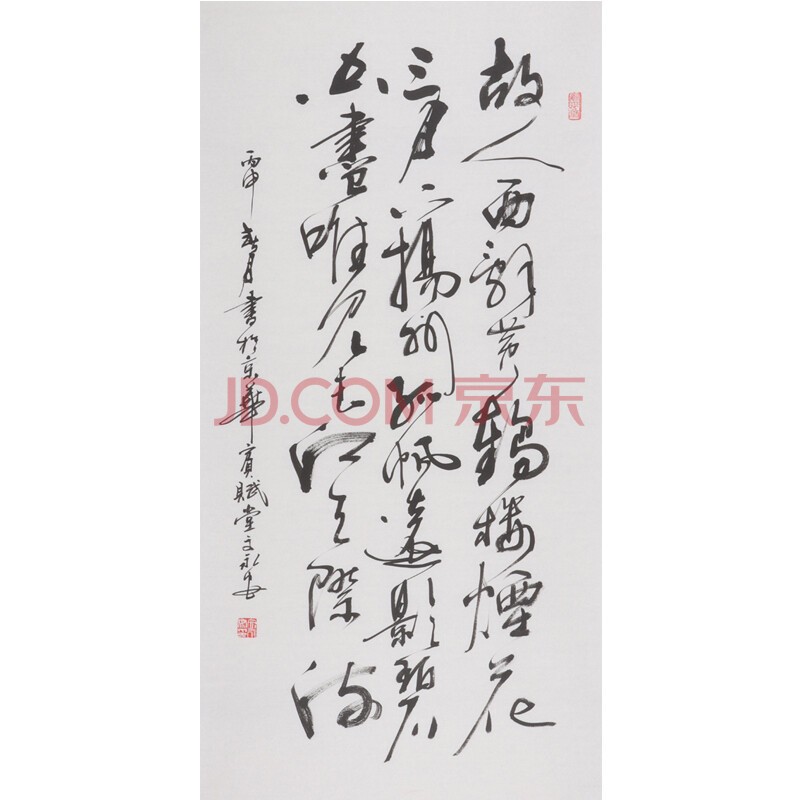 故人西辭黃鶴樓煙花
三月下揚州孤帆遠影碧
盡唯見長江天際流
丙申春月書於京華賦堂文永
JD.COM 京东